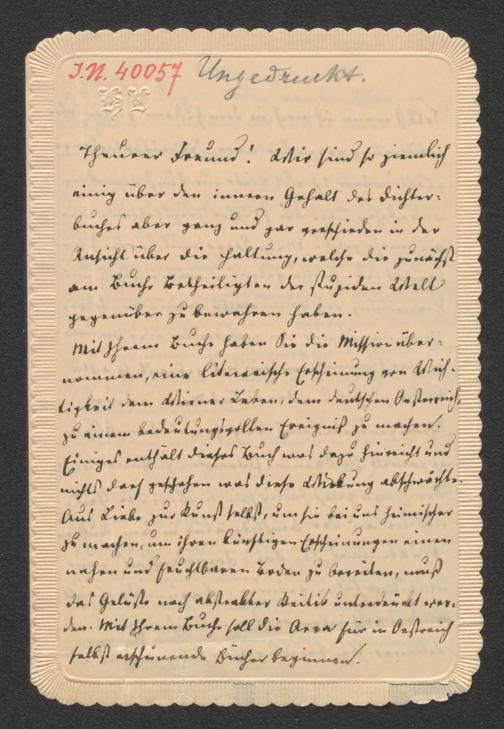 I.N. 40057 Ungedruckt.
Theurer Freund! Wir sind so ziemlich
einig über den innern Gehalt des Dichter-
buches aber ganz und gar verschieden in der
Ansicht über die Haltung, welche die zunächst
am Buche Betheiligten der stupiden Welt
gegenüber zu bewahren haben.
Mit Ihrem Buche haben Sie die Mission über-
nommen, eine literarische Erscheinung von Wich-
tigkeit dem Wiener Leben, dem deutschen Oesterreich,
zu einem bedeutungsvollen Ereigniß zu machen.
Einiges enthält dieses Buch was dazu hinreicht und
nichts darf geschehen was diese Wirkung abschwächte.
Aus Liebe zur Kunst selbst, um sie bei uns heimischer
zu machen, um ihren künftigen Erscheinungen einen
nahen und fruchtbaren Boden zu bereiten, muß
das Gelüste nach abstrakter Kritik unterdrückt wer-
den. Mit Ihrem Buche soll die Aera für in Oestreich
selbst erscheinende Bücher beginnen.